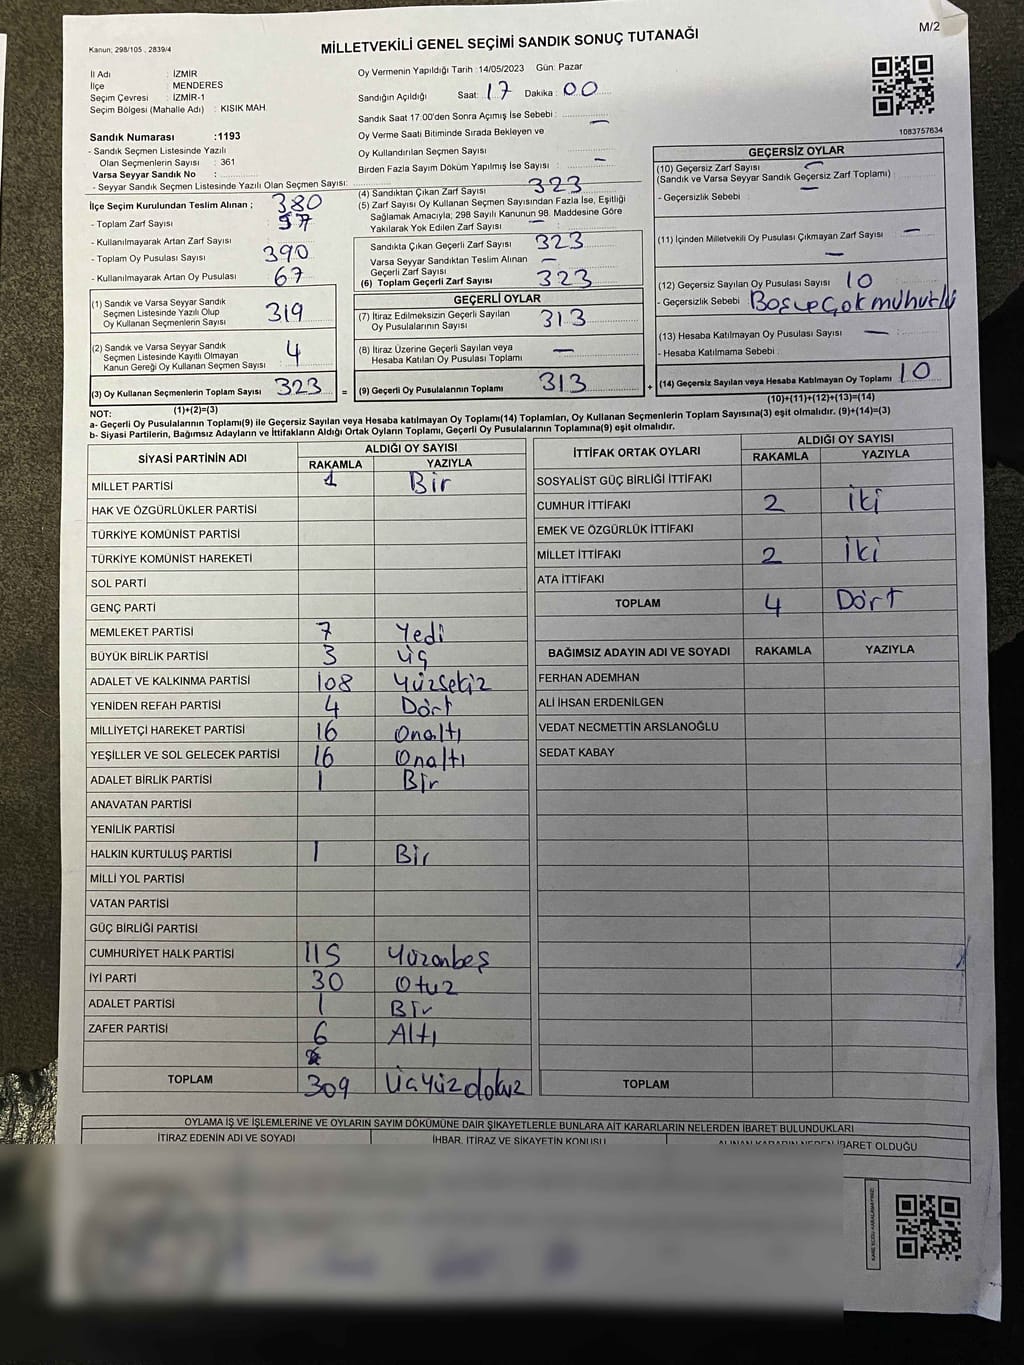 Kanun: 298/105 , 2839/4
MİLLETVEKİLİ GENEL SEÇİMİ SANDIK SONUÇ TUTANAĞI
M/2
İl Adı : İZMİR
İlçe : MENDERES
Seçim Çevresi : İZMİR-1
Seçim Bölgesi (Mahalle Adı) : KISIK MAH.
Sandık Numarası :1193
- Sandık Seçmen Listesinde Yazılı
Olan Seçmenlerin Sayısı : 361
Varsa Seyyar Sandık No :
- Seyyar Sandık Seçmen Listesinde Yazılı Olan Seçmen Sayısı:
İlçe Seçim Kurulundan Teslim Alınan ;
- Toplam Zarf Sayısı 380
- Kullanılmayarak Artan Zarf Sayısı 57
- Toplam Oy Pusulası Sayısı 390
- Kullanılmayarak Artan Oy Pusulası 67
(1) Sandık ve Varsa Seyyar Sandık
Seçmen Listesinde Yazılı Olup
Oy Kullanan Seçmenlerin Sayısı 319
(2) Sandık ve Varsa Seyyar Sandık
Seçmen Listesinde Kayıtlı Olmayan
Kanun Gereği Oy Kullanan Seçmen Sayısı 4
(3) Oy Kullanan Seçmenlerin Toplam Sayısı 323 =
(1)+(2)=(3)
Oy Vermenin Yapıldığı Tarih :14/05/2023 Gün: Pazar
Sandığın Açıldığı Saat: 17 Dakika : 00
Sandık Saat 17:00'den Sonra Açımış İse Sebebi : —
Oy Verme Saati Bitiminde Sırada Bekleyen ve
Oy Kullandırılan Seçmen Sayısı
Birden Fazla Sayım Döküm Yapılmış İse Sayısı : —
(4) Sandıktan Çıkan Zarf Sayısı 323
(5) Zarf Sayısı Oy Kullanan Seçmen Sayısından Fazla İse, Eşitliği
Sağlamak Amacıyla; 298 Sayılı Kanunun 98. Maddesine Göre
Yakılarak Yok Edilen Zarf Sayısı —
Sandıkta Çıkan Geçerli Zarf Sayısı 323
Varsa Seyyar Sandıktan Teslim Alınan
Geçerli Zarf Sayısı —
(6) Toplam Geçerli Zarf Sayısı 323
GEÇERLİ OYLAR
(7) İtiraz Edilmeksizin Geçerli Sayılan
Oy Pusulalarının Sayısı 313
(8) İtiraz Üzerine Geçerli Sayılan veya
Hesaba Katılan Oy Pusulası Toplamı —
(9) Geçerli Oy Pusulalarının Toplamı 313 +
1083757634
GEÇERSİZ OYLAR
(10) Geçersiz Zarf Sayısı —
(Sandık ve Varsa Seyyar Sandık Geçersiz Zarf Toplamı) :
- Geçersizlik Sebebi —
(11) İçinden Milletvekili Oy Pusulası Çıkmayan Zarf Sayısı —
—
(12) Geçersiz Sayılan Oy Pusulası Sayısı 10
- Geçersizlik Sebebi Boş ve çok mühürlü
(13) Hesaba Katılmayan Oy Pusulası Sayısı —
- Hesaba Katılmama Sebebi :
(14) Geçersiz Sayılan veya Hesaba Katılmayan Oy Toplamı 10
(10)+(11)+(12)+(13)=(14)
NOT:
a- Geçerli Oy Pusulalarının Toplamı(9) ile Geçersiz Sayılan veya Hesaba katılmayan Oy Toplamı(14) Toplamları, Oy Kullanan Seçmenlerin Toplam Sayısına(3) eşit olmalıdır. (9)+(14)=(3)
b- Siyasi Partilerin, Bağımsız Adayların ve İttifakların Aldığı Ortak Oyların Toplamı, Geçerli Oy Pusulalarının Toplamına(9) eşit olmalıdır.
SİYASİ PARTİNİN ADI ALDIĞI OY SAYISI
RAKAMLA YAZIYLA
MİLLET PARTİSİ 1 Bir
HAK VE ÖZGÜRLÜKLER PARTİSİ
TÜRKİYE KOMÜNİST PARTİSİ
TÜRKİYE KOMÜNİST HAREKETİ
SOL PARTİ
GENÇ PARTİ
MEMLEKET PARTİSİ 7 Yedi
BÜYÜK BİRLİK PARTİSİ 3 Üç
ADALET VE KALKINMA PARTİSİ 108 Yüzsekiz
YENİDEN REFAH PARTİSİ 4 Dört
MİLLİYETÇİ HAREKET PARTİSİ 16 Onaltı
YEŞİLLER VE SOL GELECEK PARTİSİ 16 Onaltı
ADALET BİRLİK PARTİSİ 1 Bir
ANAVATAN PARTİSİ
YENİLİK PARTİSİ
HALKIN KURTULUŞ PARTİSİ 1 Bir
MİLLİ YOL PARTİSİ
VATAN PARTİSİ
GÜÇ BİRLİĞİ PARTİSİ
CUMHURİYET HALK PARTİSİ 115 Yüzonbeş
İYİ PARTİ 30 Otuz
ADALET PARTİSİ 1 Bir
ZAFER PARTİSİ 6 Altı
TOPLAM 309 Üçyüzdokuz
İTTİFAK ORTAK OYLARI ALDIĞI OY SAYISI
RAKAMLA YAZIYLA
SOSYALİST GÜÇ BİRLİĞİ İTTİFAKI
CUMHUR İTTİFAKI 2 İki
EMEK VE ÖZGÜRLÜK İTTİFAKI
MİLLET İTTİFAKI 2 İki
ATA İTTİFAKI
TOPLAM 4 Dört
BAĞIMSIZ ADAYIN ADI VE SOYADI RAKAMLA YAZIYLA
FERHAN ADEMHAN
ALİ İHSAN ERDENİLGEN
VEDAT NECMETTİN ARSLANOĞLU
SEDAT KABAY
TOPLAM
OYLAMA İŞ VE İŞLEMLERİNE VE OYLARIN SAYIM DÖKÜMÜNE DAİR ŞİKAYETLERLE BUNLARA AİT KARARLARIN NELERDEN İBARET BULUNDUKLARI
İTİRAZ EDENİN ADI VE SOYADI İHBAR, İTİRAZ VE ŞİKAYETİN KONUSU ALINAN KARARIN NEDEN İBARET OLDUĞU
KARE KODU KARALAMAYINIZ!